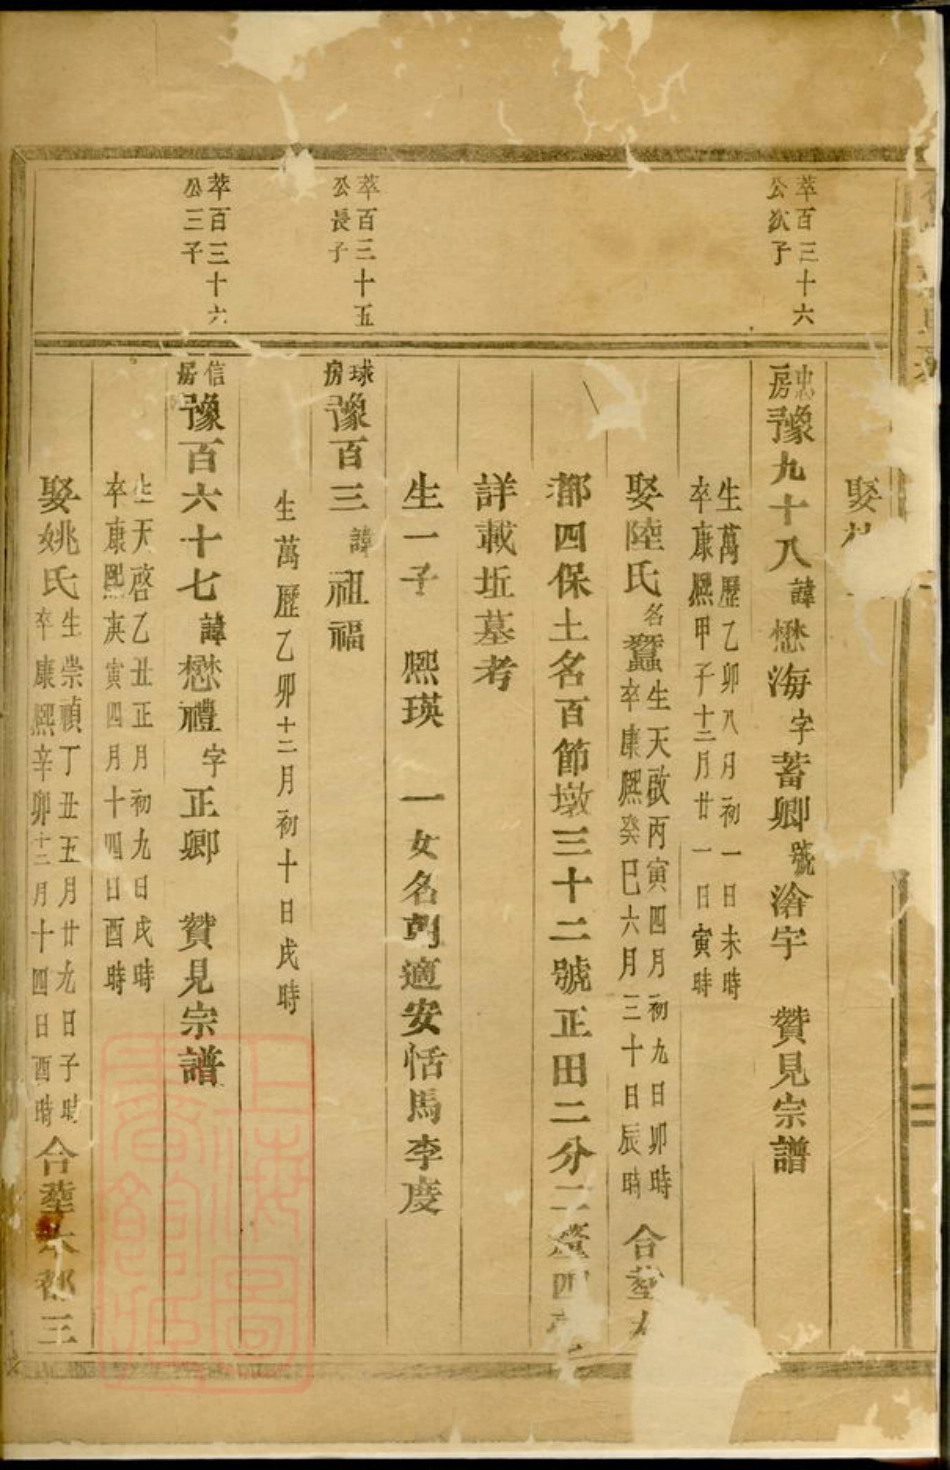 娶
萃百三十六
公次子
忠房豫九十八諱懋海字蓄卿號滄宇　贊見宗譜
生萬歷乙卯八月初一日未時
卒康熙甲子十二月廿一日寅時
娶陸氏名蠶生天啟丙寅四月初九日卯時
卒康熙癸巳六月三十日辰時
合塟
都四保土名百節墩三十二號正田二分二釐四
詳載坵墓考
生一子　熙瑛　一女名菊適安恬馬李度
萃百三十五
公長子
球房豫百三諱祖福
生萬歷乙卯十二月初十日戌時
萃百三十六
公三子
信房豫百六十七諱懋禮字正卿　贊見宗譜
生天啓乙丑正月初九日戌時
卒康熙庚寅四月十四日酉時
娶姚氏生崇禎丁丑五月廿九日子時
卒康熙辛卯十二月十四日酉時
合塟六都三
上海圖書館藏